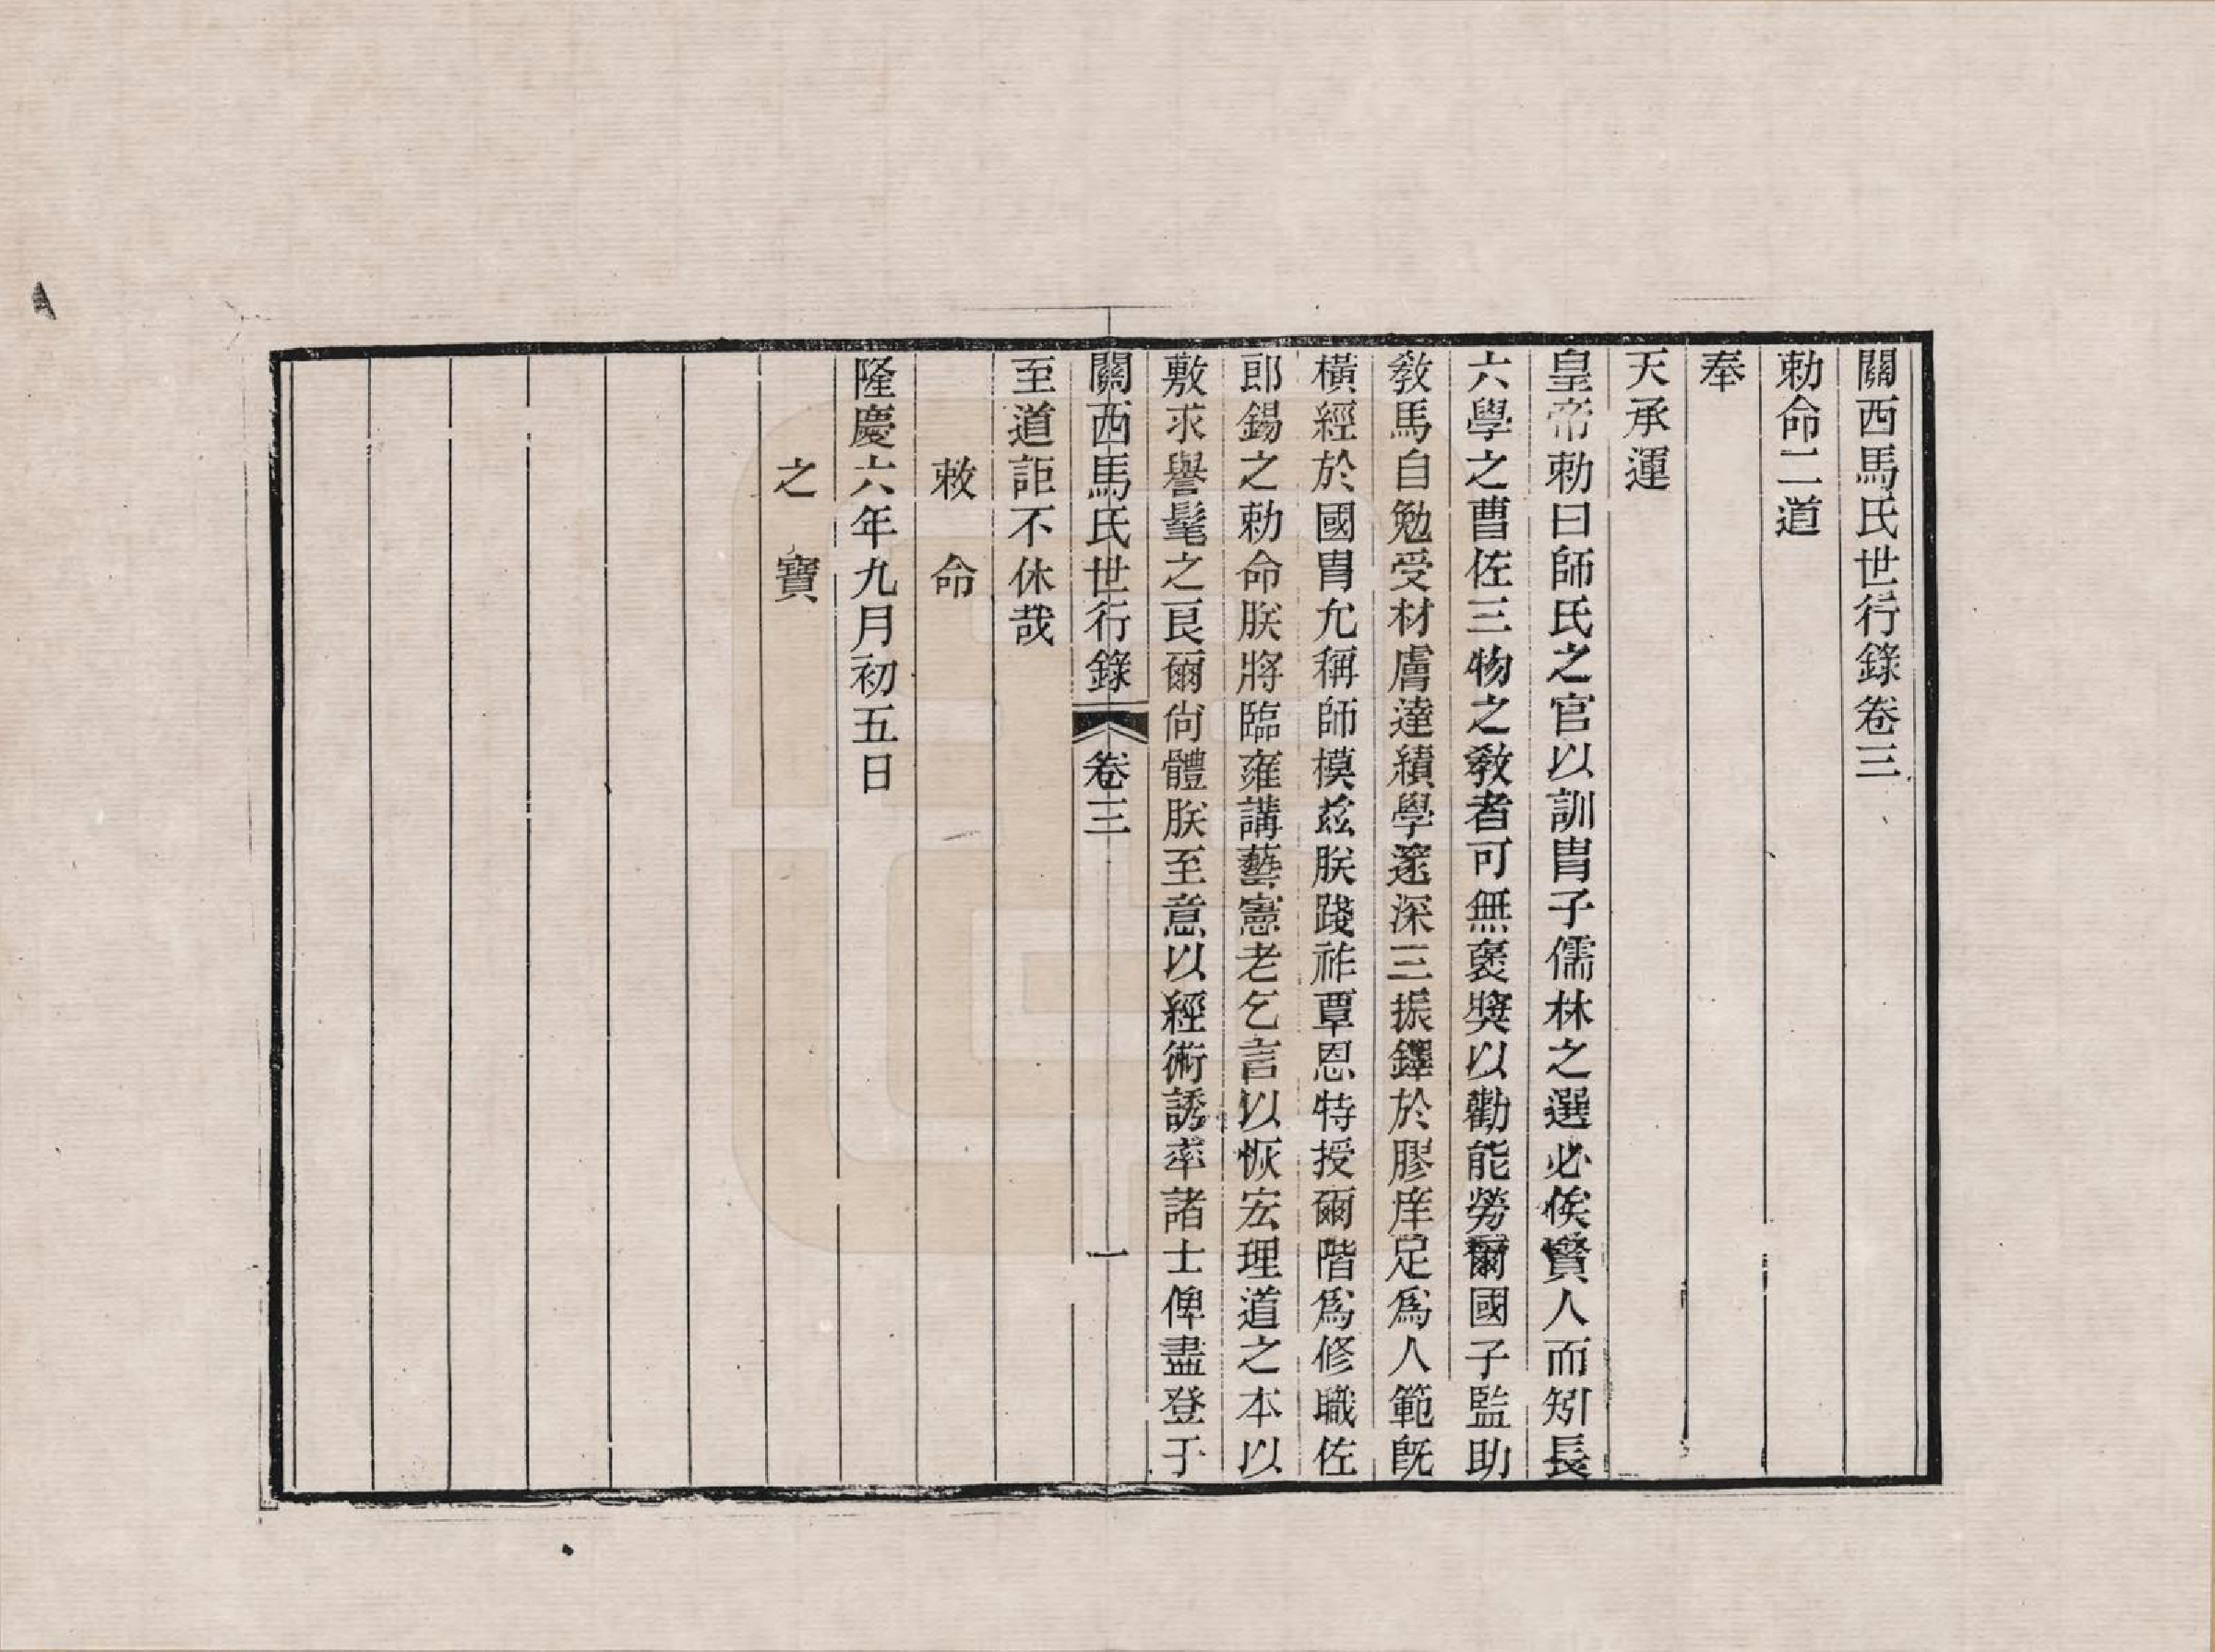 關西馬氏世行錄卷三
勅命二道
奉
天承運
皇帝勅曰師氏之官以訓冑子儒林之選必俟賢人而矧長
六學之曹佐三物之敎者可無褒奬以勸能勞爾國子監助
敎馬自勉受材膚達績學邃深三振鐸於膠庠足爲人範旣
橫經於國冑允稱師模玆朕踐祚覃恩特授爾階爲修職佐
郎錫之勅命朕將臨雍講藝憲老乞言以恢宏理道之本以
敷求譽髦之良爾尙體朕至意以經術誘率諸士俾盡登于
關西馬氏世行錄 卷三 一
至道詎不休哉
敕 命
隆慶六年九月初五日
之 寶